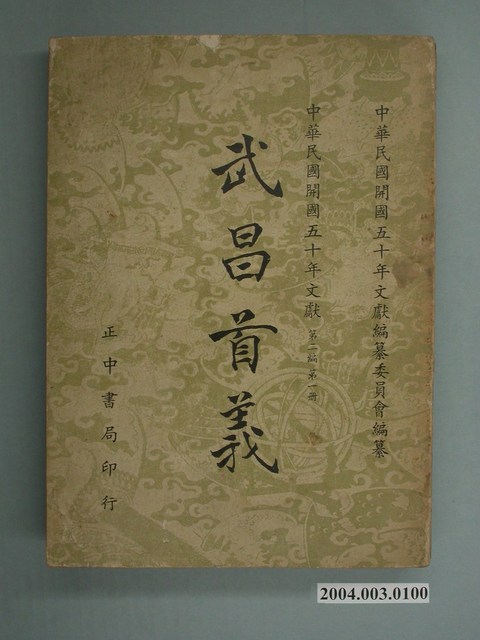 中華民國開國五十年文獻編纂委員會編纂
中華民國開國五十年文獻 第二編 第一冊
武昌首義
正中書局印行
2004.003.0100